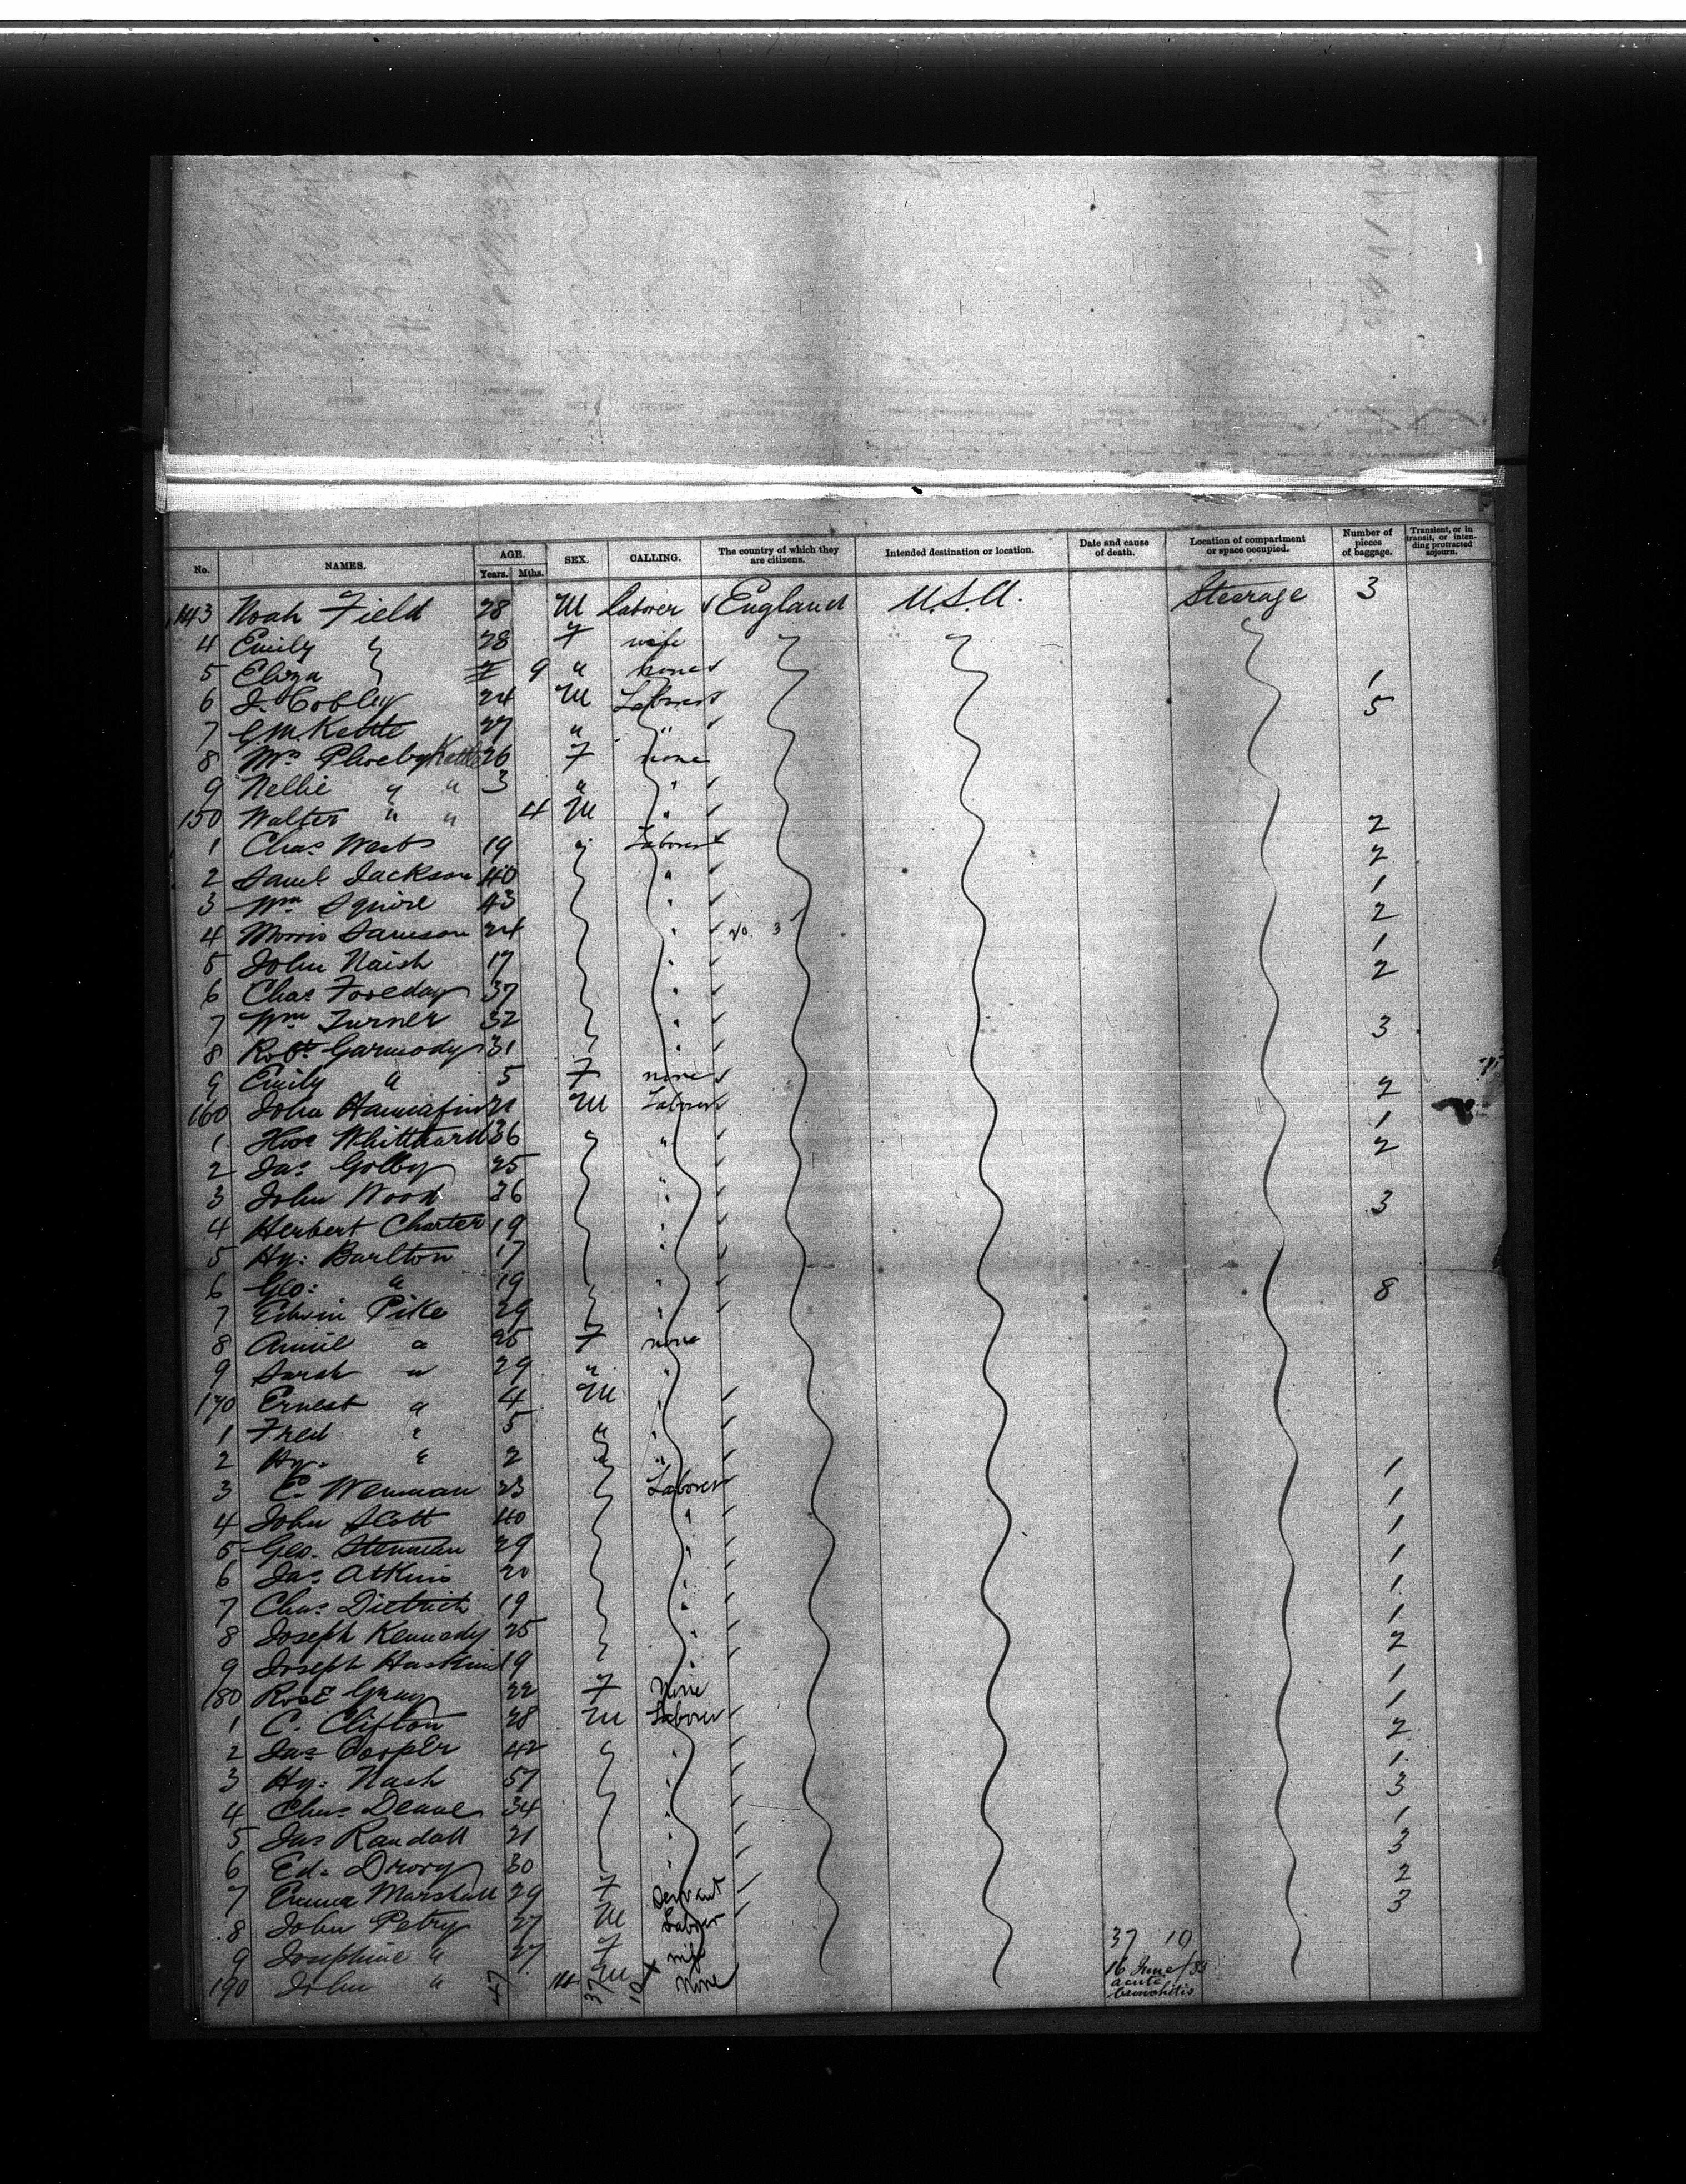 No. NAMES. AGE. Years. Mths. SEX. CALLING. The country of which they are citizens. Intended destination or location. Date and cause of death. Location of compartment or space occupied. Number of pieces of baggage. Transient, or in transit, or intending protracted sojourn.
143 Noah Field 28 M Laborer England U.S.A. Steerage 3
4 Emily " 28 F wife
5 Eliza " 9 " none 1
6 J. Cobley 24 M Laborer 5
7 G.M. Kettle 27 " "
8 Mrs Phoeby Kettle 26 F none
9 Nellie " " 3 " "
150 Walter " " 4 M " 2
1 Chas West 19 " Laborer 2
2 Saml Jackson 40 " 1
3 Wm Squire 43 " 2
4 Morris Samson 24 " 1
5 John Naish 17 " 2
6 Chas 37 "
7 Wm Turner 32 " 3
8 Robt Garmody 31 "
9 Emily " 5 F none 2
160 John Hannafin 21 M Laborer 1
1 36 " " 2
2 Jas Golby 25 "
3 John Wood 36 " 3
4 Herbert Charter 19 "
5 Hy: Barlton 17 "
6 Geo: " 19 " 8
7 Edwin Pike 29 "
8 Annie " 25 F none
9 Sarah " 29 " "
170 Ernest " 4 M "
1 Fred " 5 " "
2 Hy: " 2 " " 1
3 E. Wenman 23 Laborer 1
4 John Scott 40 " 1
5 Geo. Stenman 29 " 1
6 Jas Atkins 20 " 1
7 Chas Dietrich 19 " 1
8 Joseph Kennedy 25 " 2
9 Joseph Haskins 19 " 1
180 Rose Gray 22 F None 1
1 C. Clifton 28 M Laborer 2
2 Jas Cooper 42 " " 1
3 Hy: Nash 57 " 3
4 Chas Deane 34 " 1
5 Jas Randall 21 " 3
6 Ed. Drory 30 " 2
7 Emma Marshall 29 F Servant 3
8 John Petry 27 M Labour
9 Josephine " 27 F wife 37 10
190 John " M None 16 June acute bronchitis
47 37 10